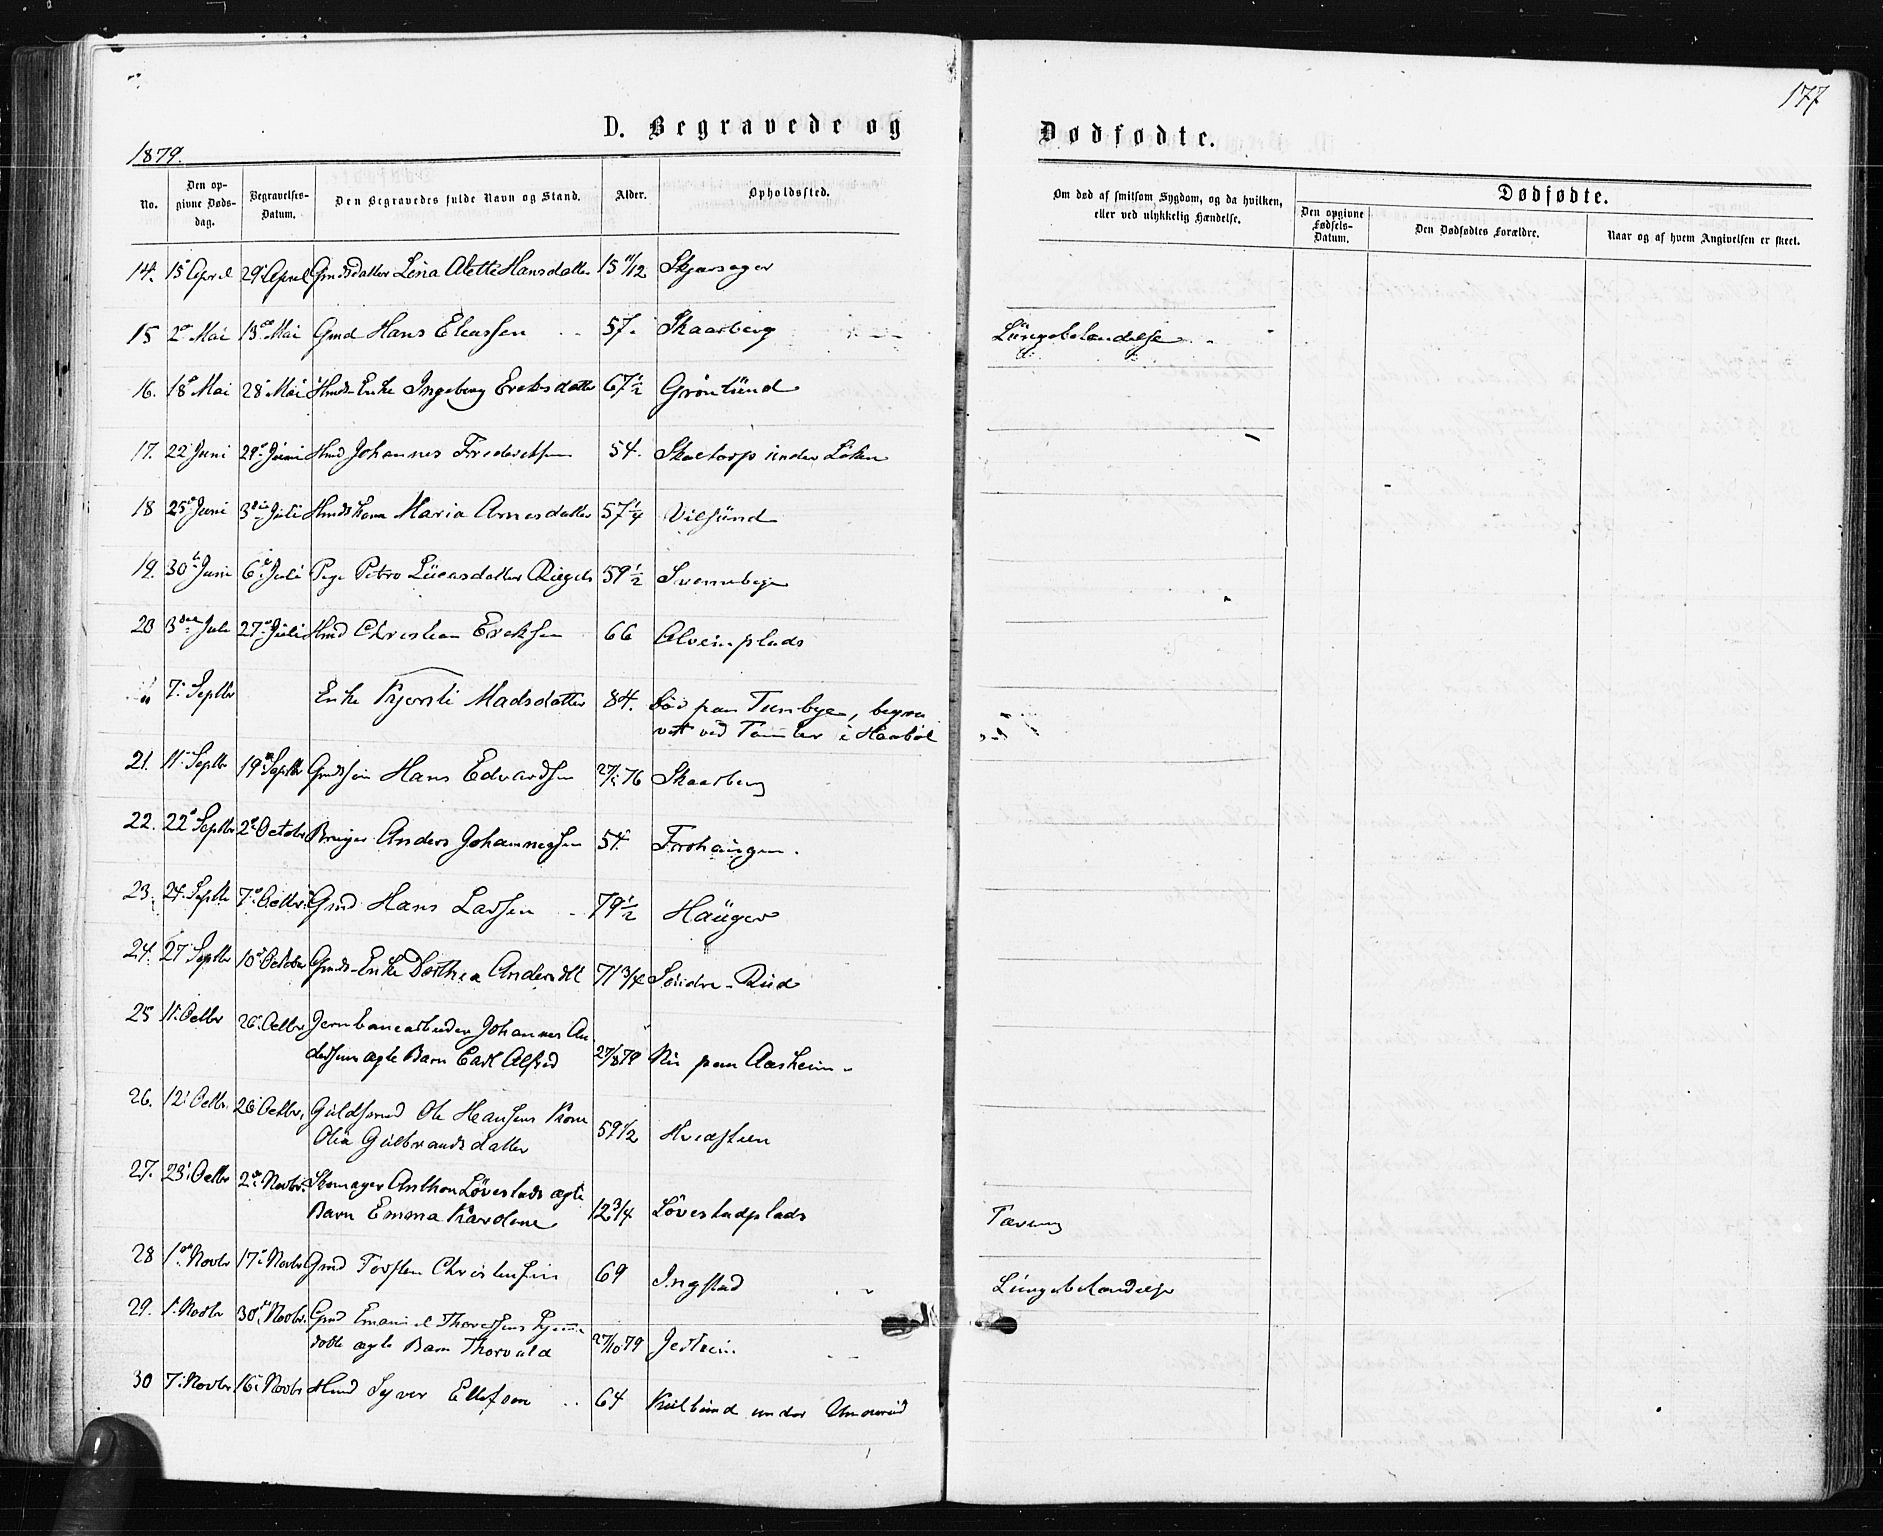 177
D. Begravede og Dødfødte.
1879.
No.
Den op-
givne Døds-
dag.
Begravelses-
Datum.
Den Begravedes fulde Navn og Stand.
Alder.
Opholdssted.
Om død af smitsom Sygdom, og da hvilken,
eller ved ulykkelig Hændelse.
Dødfødte.
Den opgivne
Fødsels-
Datum.
Den Dødfødtes Forældre.
Naar og af hvem Angivelsen er skeet.
14. 15 April 29 April Gmdsdatter Lina Alette Hansdatter 15 11/12 Skjærsager
15 2 Mai 13 Mai Gmd Hans Eliassen 57. Skaarberg Lungebetændelse
16. 18 Mai 28 Mai Hmds-Enke Ingeborg Eriksdatter 67 1/2 Grönlund
17. 22 Juni 29 Juni Hmd Johannes Frederiksen 54. under Löken
18 25 Juni 3die Juli Hmdskone Maria Arnesdatter 57 1/4 Vilsund
19. 30 Juni 6 Juli Pige Petra Lucasdatter 59 1/2 Svenneby
20 3die Juli 27 Juli Hmd Christian Eriksen 66 Alveimplads
7. Septbr Enke Kjersti Madsdatter 84. död paa Tunbye, begra
vet ved i Haaböl
21. 11 Septbr 19 Septbr Gmdssön Hans Edvardsen 27/1 76 Skaarberg
22. 22 Septbr 2 Octobr Bruger Anders Johannessen 54. Froshaugen.
23. 24. Septbr 7. Octbr. Gmd Hans Larsen 79 1/2 Hauger
24. 27 Septbr 10 October Gmds-Enke Dorthea Andersdtt 71 3/4 Söndre-Rud
25 11. Octbr 26. Octbr Jernbanearbeider Johannes An
dersens ægte Barn Carl Alfred 27/8 79 Nu paa Aasheim
26. 12. Octbr. 26 Octbr. Guldsmed Ole Hansens Kone
Olia Gulbrandsdatter 59 1/2 Hvidsteen
27. 23 Octbr 2 Novbr. Skomager Anthon Lövestads ægte
Barn Emma Karoline 12 3/4 Lövestadplads Tæring
28 1 Novbr 17 Novbr Gmd Torsten Christensen 69 Ingstad Lungebetændelse
29. 1. Novbr 30 Novbr. Gmd Emanuel Thoresens hjemme
döbte ægte Barn Thorvald 27/10 79 Jestein
30 7. Novbr 16. Novbr Hmd Syver Ellefsen 64 under